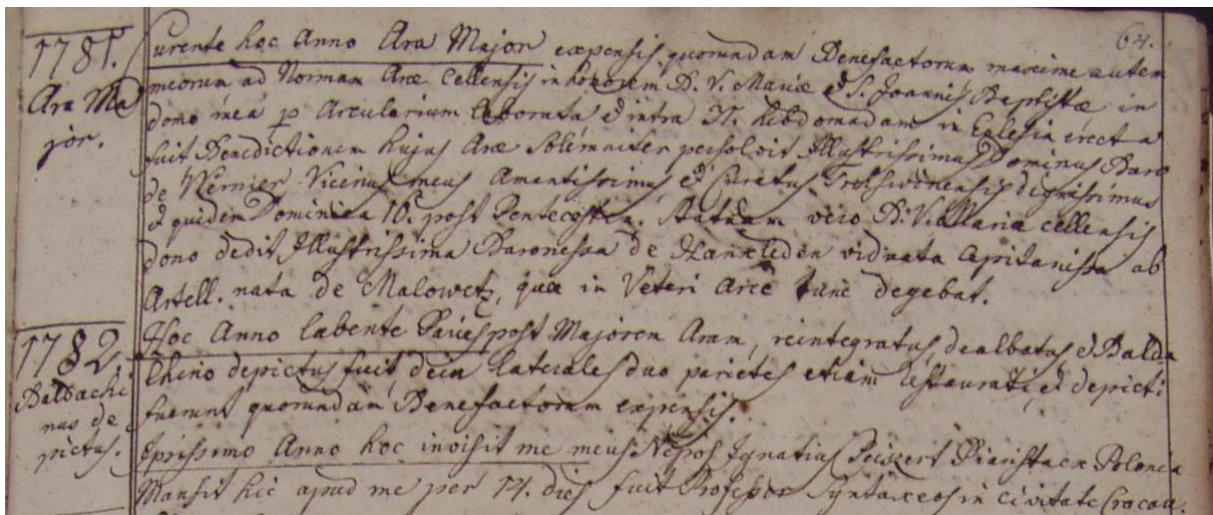 64.
1781.
Ara Ma
jor.
Curente hoc Anno Ara Major expensis quorundam Benefactorum maxime autem
meorum ad Normam Aræ Cellensis in honorem B. V. Mariæ et S. Joannis Baptistæ in
domo mea p Arcularium laborata et intra hebdomadam in Eclesia erecta
fuit Benedictionem hujus Aræ Solemniter persolvit Illustrissimus Dominus Baro
de Wernier Vicinus meus Amantissimus, et Curatus dignissimus
et quidem Dominica 10. post Pentecosten. Statuam vero B. V. Mariæ cellensis
dono dedit Illustrissima Baronessa de Hanxleden viduata Capitanissa ab
Artell. nata de Malowetz, quæ in Veteri Arce tunc degebat.
1782.
Baldachi
nus de
pictus.
Hoc Anno labente Paries post Majorem Aram, reintegratus, dealbatus et Balda
chino depictus fuit, dein Laterales duo parietes etiam restaurati, et depicti
fuerunt quorundam Benefactorum expensis.
Ipsissimo Anno hoc invisit me meus Nepos Ignatius Piarista ex Polonia
Mansit hic apud me per 14. dies fuit Professor Syntaxeos in civitate Cracau.